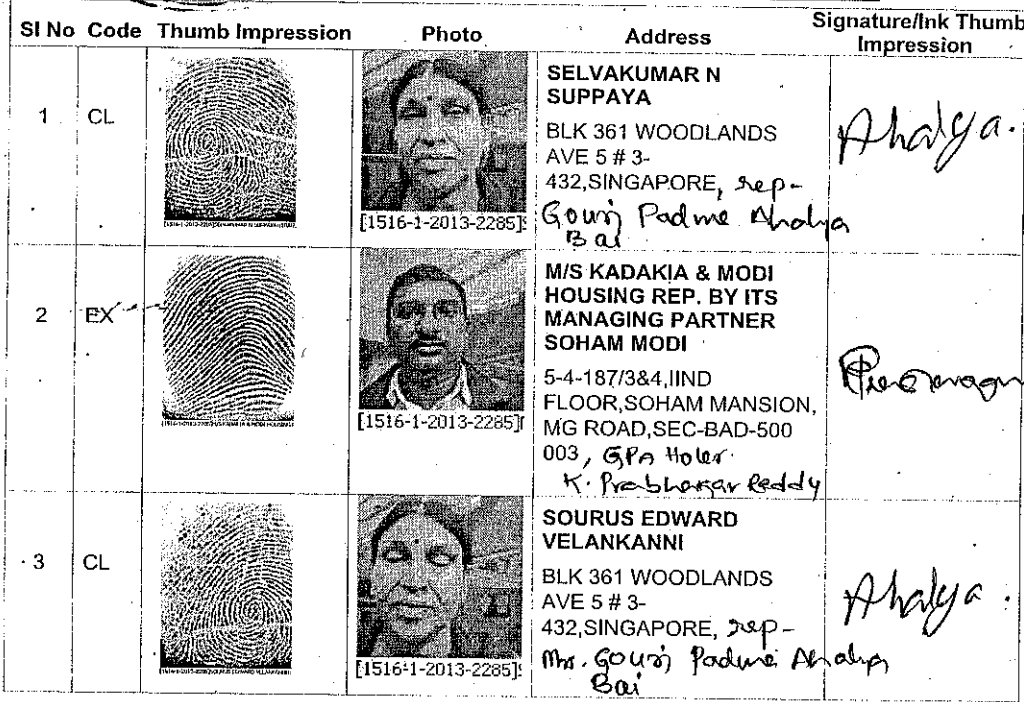 SI No Code Thumb Impression Photo Address Signature/Ink Thumb
Impression
1 CL
SELVAKUMAR N
SUPPAYA
BLK 361 WOODLANDS
AVE 5 # 3-
432,SINGAPORE, rep-
Gouri Padme Ahalya
Bai
Ahalya.
[1516-1-2013-2285]
2 EX
M/S KADAKIA & MODI
HOUSING REP. BY ITS
MANAGING PARTNER
SOHAM MODI
5-4-187/3&4,IIND
FLOOR,SOHAM MANSION,
MG ROAD,SEC-BAD-500
003, GPA Holer.
K. Prabhakar Reddy
[1516-1-2013-2285]
3 CL
SOURUS EDWARD
VELANKANNI
BLK 361 WOODLANDS
AVE 5 # 3-
432,SINGAPORE, rep-
Mrs. Gouri Padme Ahalya
Bai
Ahalya.
[1516-1-2013-2285]